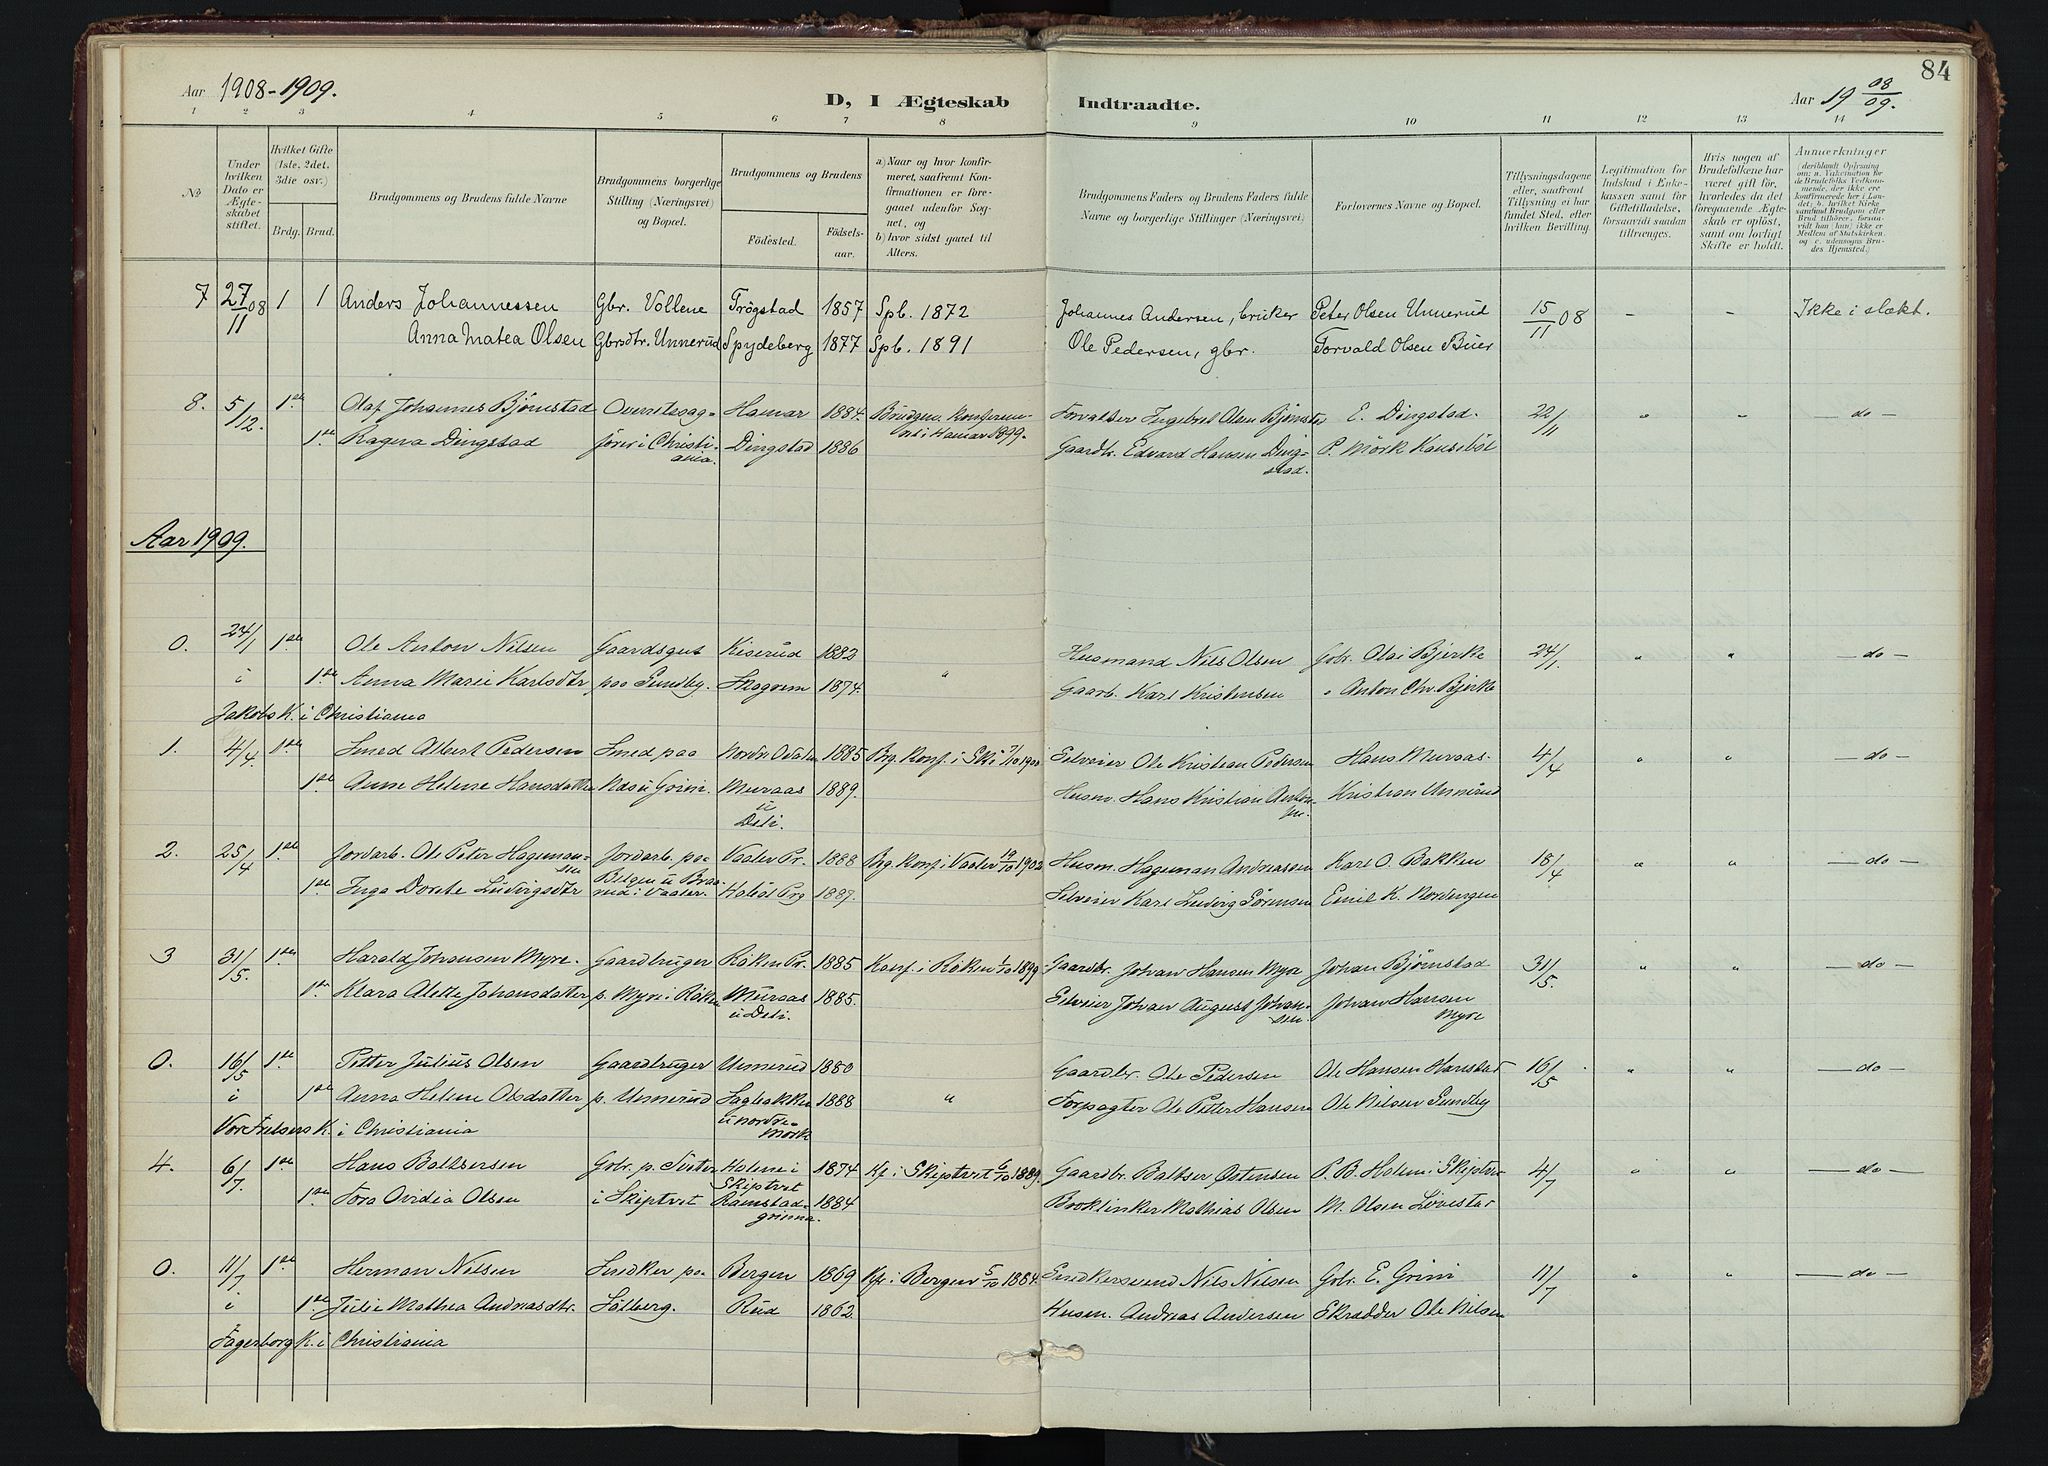 84
Aar 1908-1909.
D, I Ægteskab Indtraadte.
Aar 19 08/09.
1 2 3 4 5 6 7 8 9 10 11 12 13 14
No
Under hvilken Dato er Ægteskabet stiftet.
Hvilket Gifte (1ste, 2det, 3die osv.)
Brdg. Brud.
Brudgommens og Brudens fulde Navne
Brudgommens borgerlige Stilling (Næringsvei) og Bopæl.
Brudgommens og Brudens
Födested. Födsels-aar.
a) Naar og hvor konfirmeret, saafremt Konfirmationen er foregaaet udenfor Sognet, og
b) hvor sidst gaaet til Alters.
Brudgommens Faders og Brudens Faders fulde Navne og borgerlige Stillinger (Næringsvei)
Forlovernes Navne og Bopæl.
Tillysningsdagene eller, saafremt Tillysning ei har fundet Sted, efter hvilken Bevilling.
Legitimation for Indskud i Enkekassen samt for Giftetilladelse, forsaavidt saadan tiltrænges.
Hvis nogen af Brudefolkene har været gift för, hvorledes da det foregaaende Ægteskab er oplöst, samt om lovligt Skifte er holdt.
Anmærkninger
(deriblandt Oplysning om: a. Vakcination for de Brudefolks Vedkommende, der ikke ere konfirmerede her i Landet; b. hvilket Kirkesamfund Brudgom eller Brud tilhörer, forsaavidt han (hun) ikke er Medlem af Statskirken, og c. udensogns Brudes Hjemsted.)
7 27/11 08 1 1 Anders Johannessen Gbr. Vollene Trøgstad 1857 Spb. 1872 Johannes Andersen, bruker Peter Olsen Unnerud 15/11 08 - - Ikke i slækt.
Anna Matea Olsen Gbrsdtr. Unnerud Spydeberg 1877 Spb. 1891 Ole Pedersen, gbr. Torvald Olsen Buer
8. 5/12. 1ste Olaf Johannes Bjørnstad Overretssag- Hamar 1884. Brudgom konfirme- Forvalter Ingebret Olsen Bjørnstad E. Dingstad. 22/11 " " - do -
1ste Ragna Dingstad fører i Christi- Dingstad 1886 ret i Hamar 1899. Gaardbr. Edvard Hansen Ding- P. Mörk
ania. stad.
Aar 1909.
0. 24/1 1ste Ole Anton Nilsen Gaardsgut Kiserud 1882 Husmand Nils Olsen Gbr. Olai Bjerke 24/1. " " - do -
i 1ste Anna Marie Karlsdtr paa Sundby. Skogsem 1874. " Gaarb. Karl Kristensen " Anton Chr. Bjerke
Jakobs K. i Christiania
1. 4/4. 1ste Smed Albert Pedersen Smed paa Nordre Odalen 1885 Brg. Konf. i Ski 7/10 1900 Selveier Ole Kristian Pedersen Hans Muraas. 4/4 " " - do -
1ste Anne Helene Hansdatter Næs u Grini. Muraas 1889. Husm. Hans Kristian Anton- Kristian Unnerud
u sen.
Deli.
2. 25/4 1ste Jordarb. Ole Peter Hageman- Jordarb. paa Vaaler Pr. 1888 Brg. Konf. i Vaaler 19/10 1902 Husm. Hageman Andreassen Karl O. Bakken 18/4 " " - do -
sen
1ste Inga Dorthe Ludvigsdtr rud i Vaaler. Hobøl Prg 1887. Selveier Karl Ludvig Sörensen Emil K. Nordengen
3 31/5. 1ste Harald Johansen Myre. Gaardbruger Röken Pr. 1885 Konf. i Röken 1/10 1899 Gaardbr. Johan Hansen Myre Johan Bjørnstad 31/5. " " - do -
1ste Klara Alette Johansdatter p. Myre i Röken Muraas 1885. Selveier Johan August Johan- Johan Hansen
u Deli. sen. Myre
0. 16/5 1ste Petter Julius Olsen Gaardbruger Unnerud 1880 Gaardbr. Ole Pedersen Ole Hansen Harestad 16/5 " " - do -
i 1ste Anna Helene Olsdatter p. Unnerud Sagbakken 1888 " Forpagter Ole Petter Hansen Ole Nilsen Sundby
Vor Frelsers K. i Christiania u nordre
Mörk
4. 6/7 1ste Hans Baltsersen Gbr. p. Holene i 1874 Kf i Skiptvet 6/10 1889. Gaardbr. Baltser Östensen P. B. Holene i Skiptvet 4/7 " " - do -
Skiptvet
1ste Tora Ovidia Olsen i Skiptvet Ramstad- 1884 Mathias Olsen M. Olsen Løvestad
grinna.
0. 11/7. 1ste Herman Nilsen Snedker paa Bergen 1869 Kf i Bergen 5/10 1884. Snedkersvend Nils Nilsen Gbr. E. Grini 11/7 " " - do -
i 1ste Julie Mathea Andreasdtr. Solberg. Rud 1862 Husm. Andreas Andersen Skrædder Ole Nilsen
Fagerborg K. i Christiania